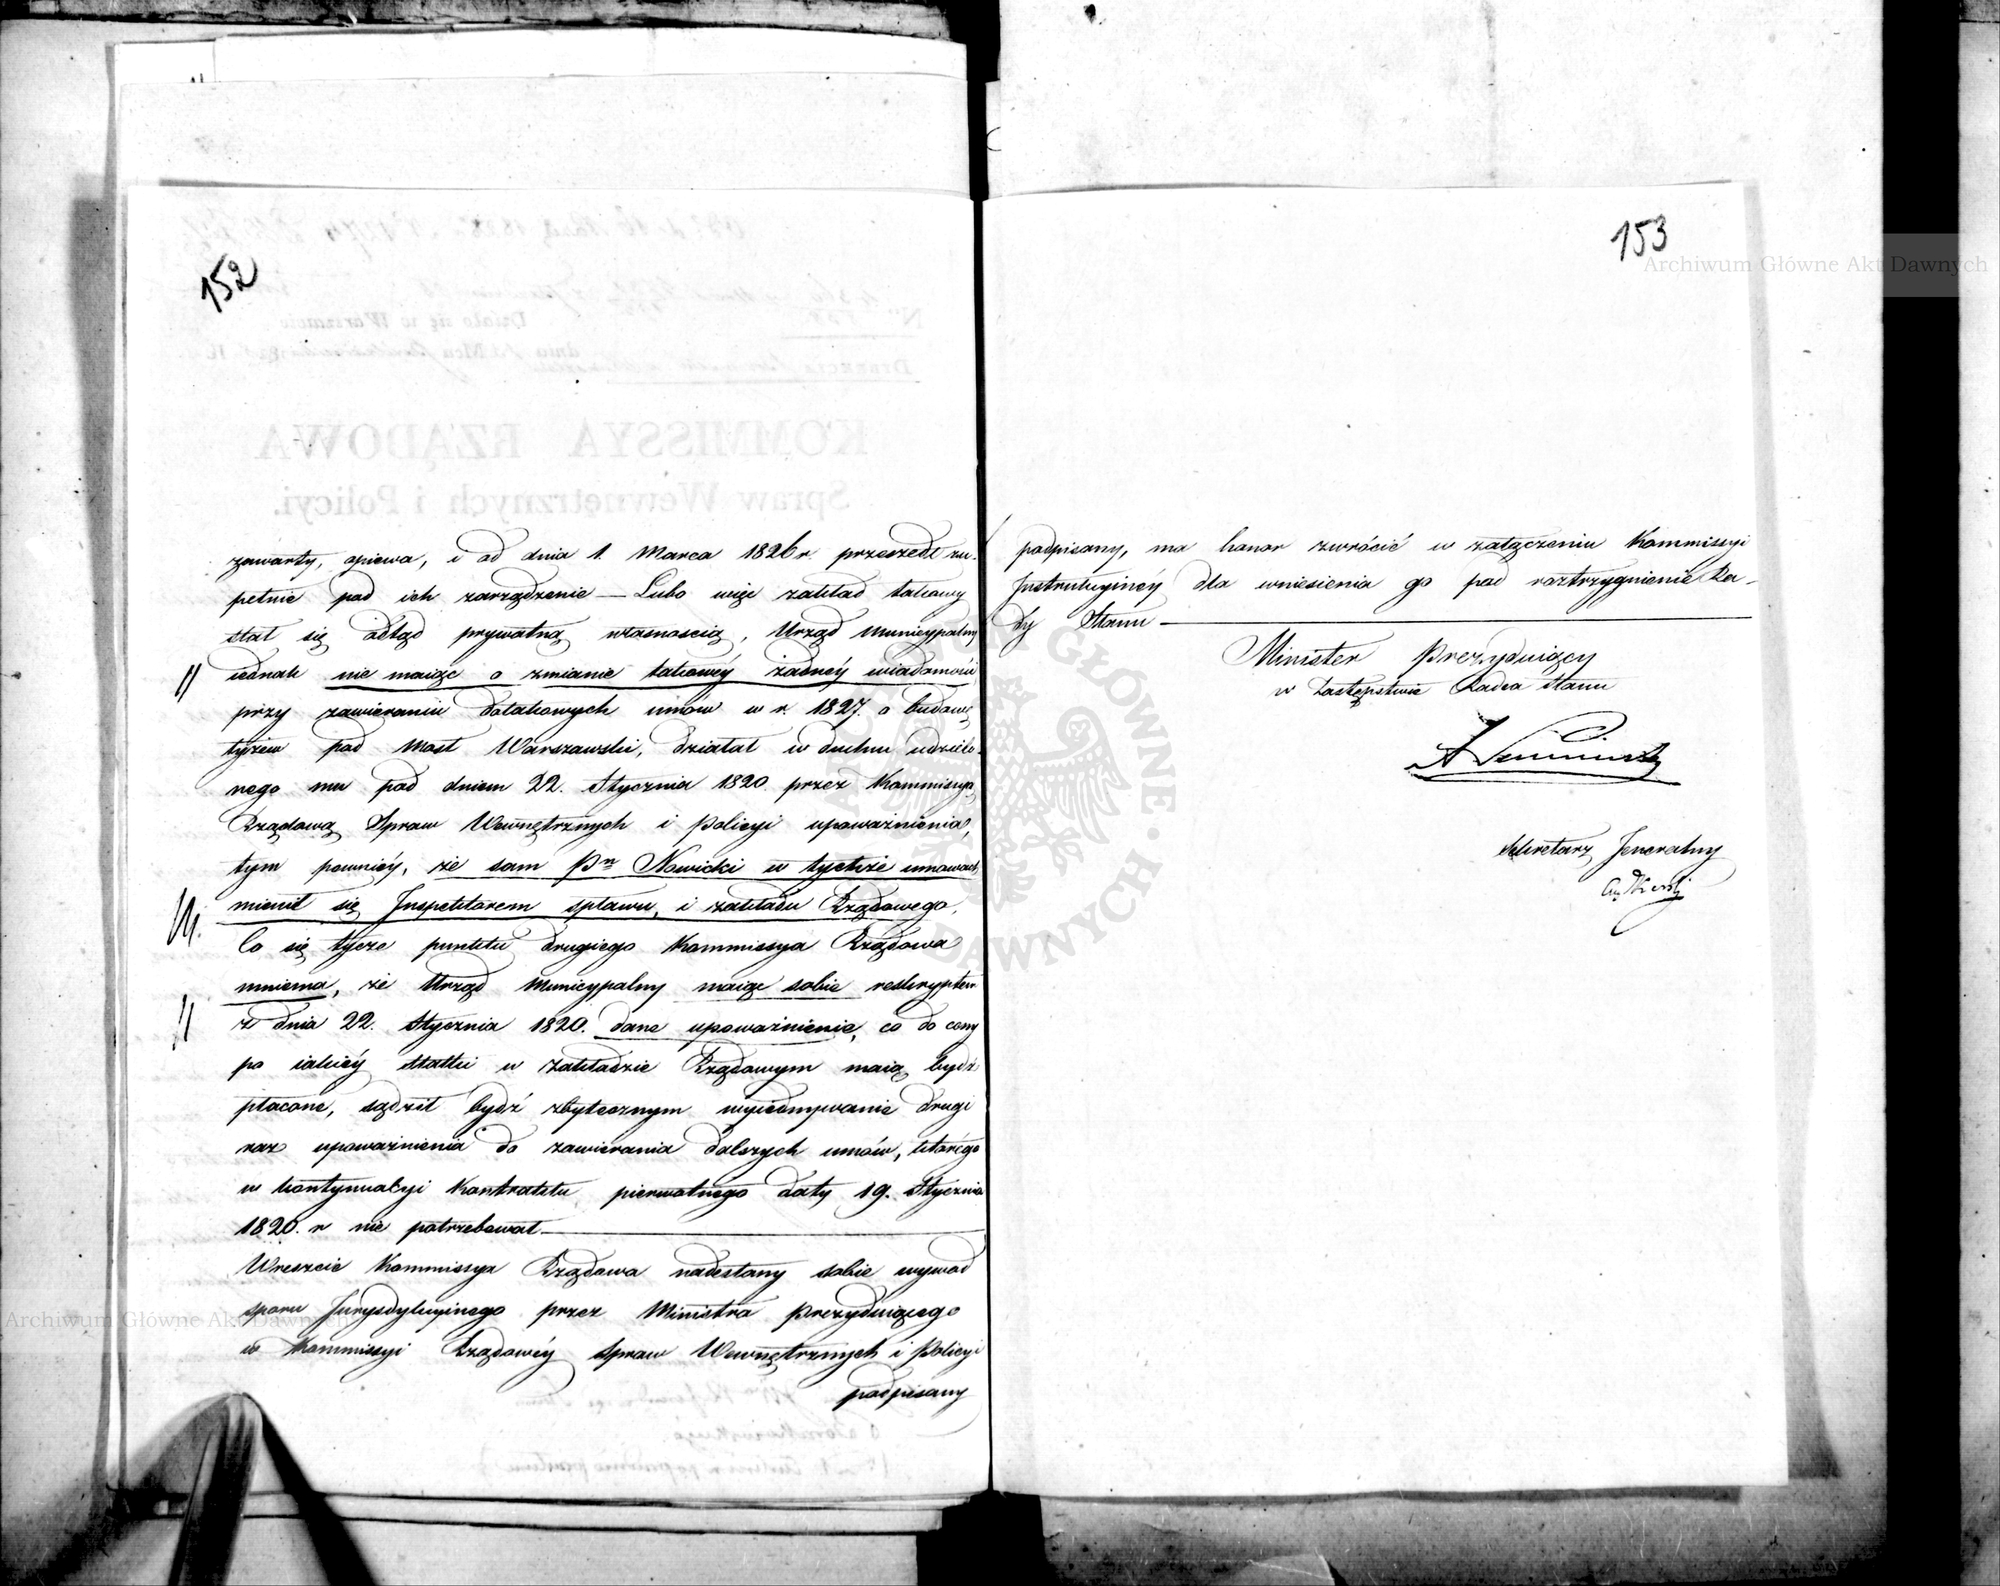 152
zawarty, opiewa, i od dnia 1. Marca 1826 r przeszedł zu-
pełnie pod ich zarządzenie — Lubo więc zakład takowy
stał się odtąd prywatną własnoscią, Urząd Municypalny
iednak nie maiąc o zmianie takowéy żadnéy wiadomości
przy zawieraniu dodatkowych umów w r. 1827. o budowę
łyżew pod Most Warszawski, działał w duchu udzielo-
nego mu pod dniem 22. Stycznia 1820 przez Kommissyą
Rządową Spraw Wewnętrznych i Policyi upoważnienia,
tym pewniéy, że sam Pn Nowicki w tychże umowach
mienił się Inspektorem spławu, i zakładu Rządowego.
Co się tycze punktu drugiego Kommissya Rządowa
mniema, że Urząd Municypalny maiąc sobie reskryptem
z dnia 22. Stycznia 1820. dane upoważnienie, co do ceny
po iakiéy statki w zakładzie Rządowym maią bydź
płacone, sądził bydź zbytecznym wyiednywanie drugi
raz upoważnienia do zawierania dalszych umów, którego
w kontynuacyi Kontraktu pierwotnego daty 19. Stycznia
1820. r nie potrzebował —
Wreszcie Kommissya Rządowa nadesłany sobie wywod
sporu Jurysdykcyinego przez Ministra Prezyduiącego
w Kommissyi Rządowéy Spraw Wewnętrznych i Policyi
podpisany
153
podpisany, ma honor zwrócić w załączeniu Kommissyi
Instrukcyinéy dla wniesienia go pod roztrzygnienie Ra-
dy Stanu —
Minister Prezyduiący
w Zastępstwie Radca Stanu
Sekretarz Jeneralny
KOMMISSYA RZĄDOWA
Spraw Wewnętrznych i Policyi.
Działo się w Warszawie
Archiwum Główne Akt Dawnych
Archiwum Główne Akt Dawnych
GŁÓWNE · DAWNYCH